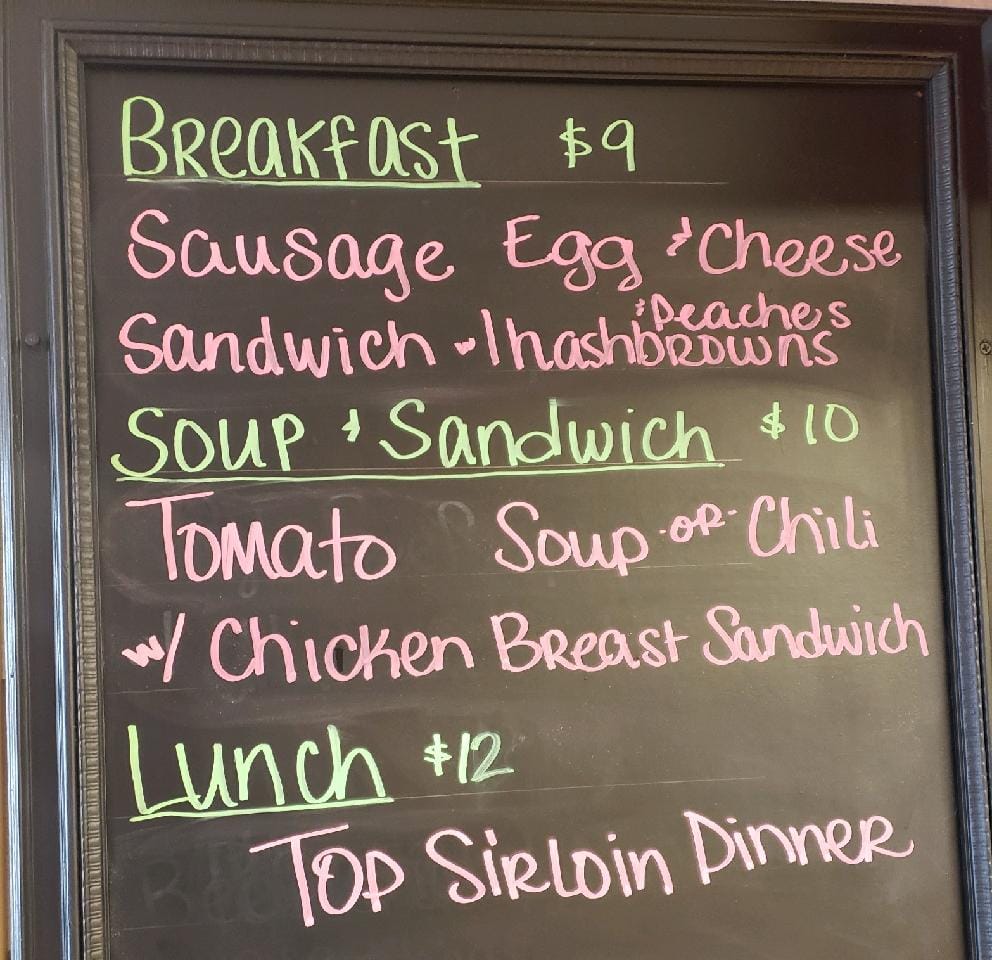 Breakfast $9
Sausage Egg & Cheese
& Peaches
Sandwich w/ hashbrowns
Soup & Sandwich $10
Tomato Soup -or- Chili
w/ Chicken Breast Sandwich
Lunch $12
Top Sirloin Dinner